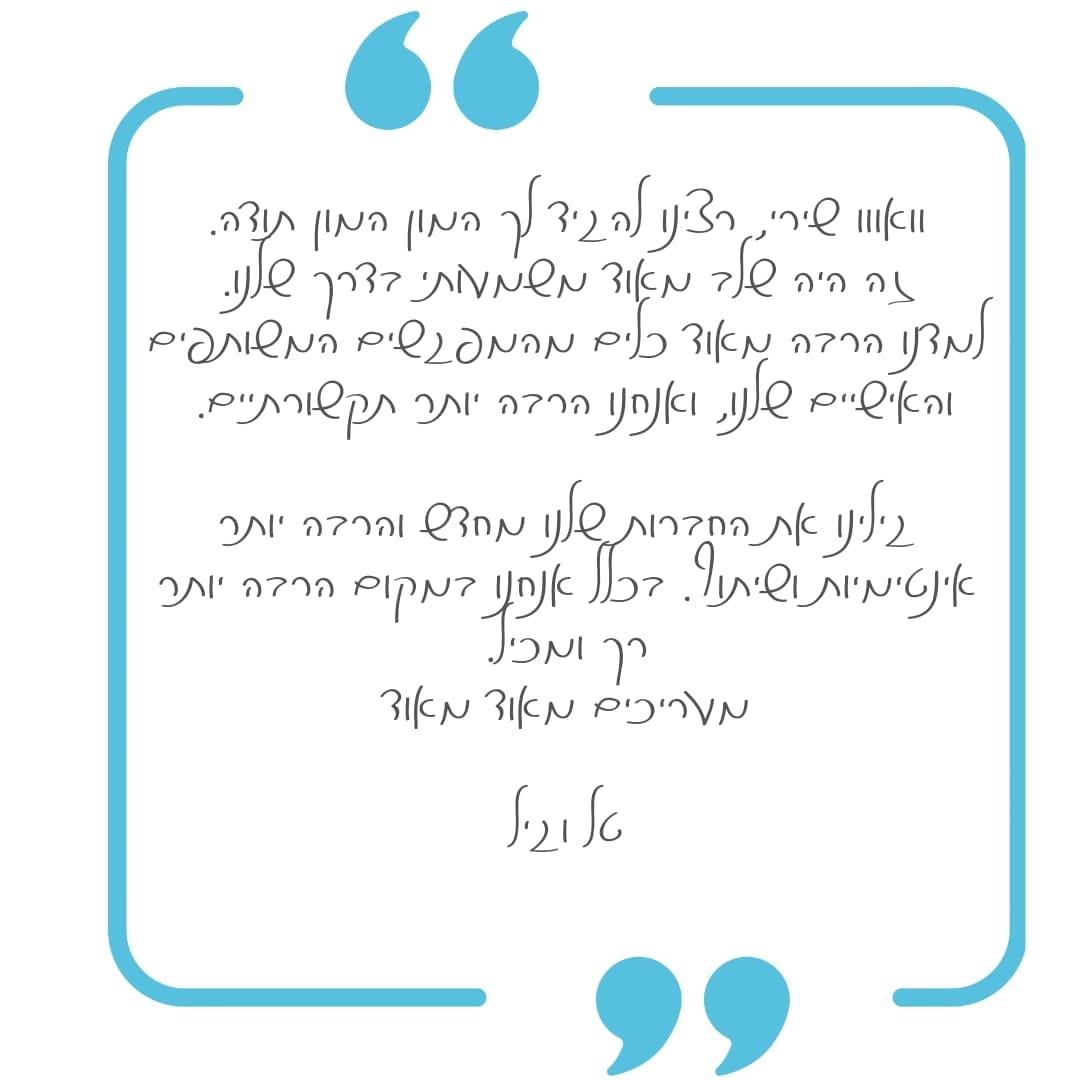 וואווו שירי, רצינו להגיד לך המון המון תודה.
זה היה שלב מאוד משמעותי בדרך שלנו.
למדנו הרבה מאוד כלים מהמפגשים המשותפים
והאישיים שלנו, ואנחנו הרבה יותר תקשורתיים.
גילינו את החברות שלנו מחדש והרבה יותר
אינטימיות ושיתוף. בכלל אנחנו במקום הרבה יותר
רך ומכיל.
מעריכים מאוד מאוד
טל וגיל